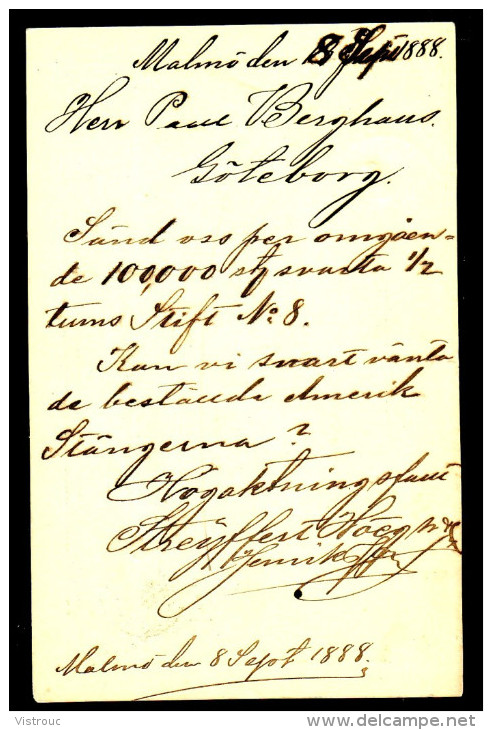 Malmö den 8 Sept 1888.
Herr Paul Berghaus.
Göteborg.
Sänd oss per omgåen-
de 100,000 st svarta 1/2
tums Stift No 8.
Kan vi snart vänta
de beställda Amerik
Stängerna?
Högaktningsfullt
Streyffert Höeg
Henrik
Malmö den 8 Sept 1888.
© Vistrouc
www.delcampe.net